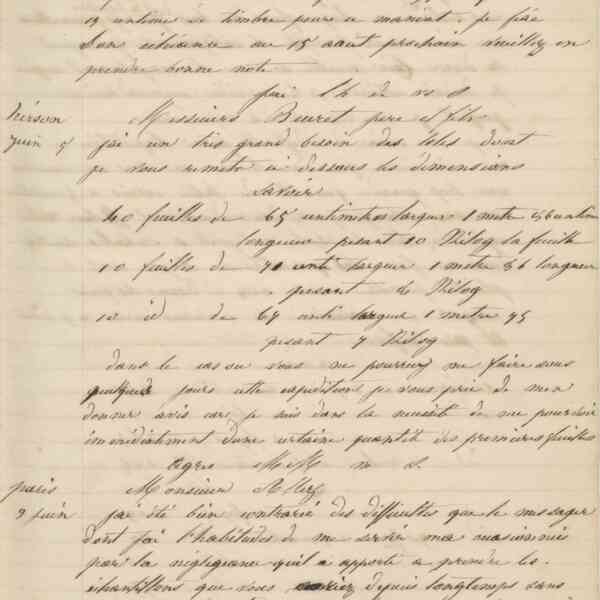 19 centimes de timbre pour ce mandat. je fixe
Son échéance au 15 aout prochain veuillez en
prendre bonne note
j'ai l h de v s
hirson Messieurs Beuret pere et fils
juin 5 jai un tres grand besoin des toles dont
je vous remets ci dessous les dimensions
Savoir
40 feuilles de 65 centimetres largeur 1 metre 56 centim
longueur pesant 10 Kilog la feuille
10 feuilles de 70 centi largeur 1 metre 56 longueur
pesant 6 Kilog
10 id de 67 centi largeur 1 metre 75
pesant 7 Kilog
dans le cas ou vous ne pourriez me faire sous
quelques jours cette expedition je vous prie de men
donner avis car je suis dans la necessité de me pourvoir
immédiatement dune certaine quantité des premieres feuilles
Agrez M M m S.
paris Monsieur
9 juin jai été bien contrarié des difficultés que le messager
dont jai lhabitudes de me servir ma occasionnés
par la négligeance quil a apporté a prendre les
échantillons que vous aviez depuis longtemps dans